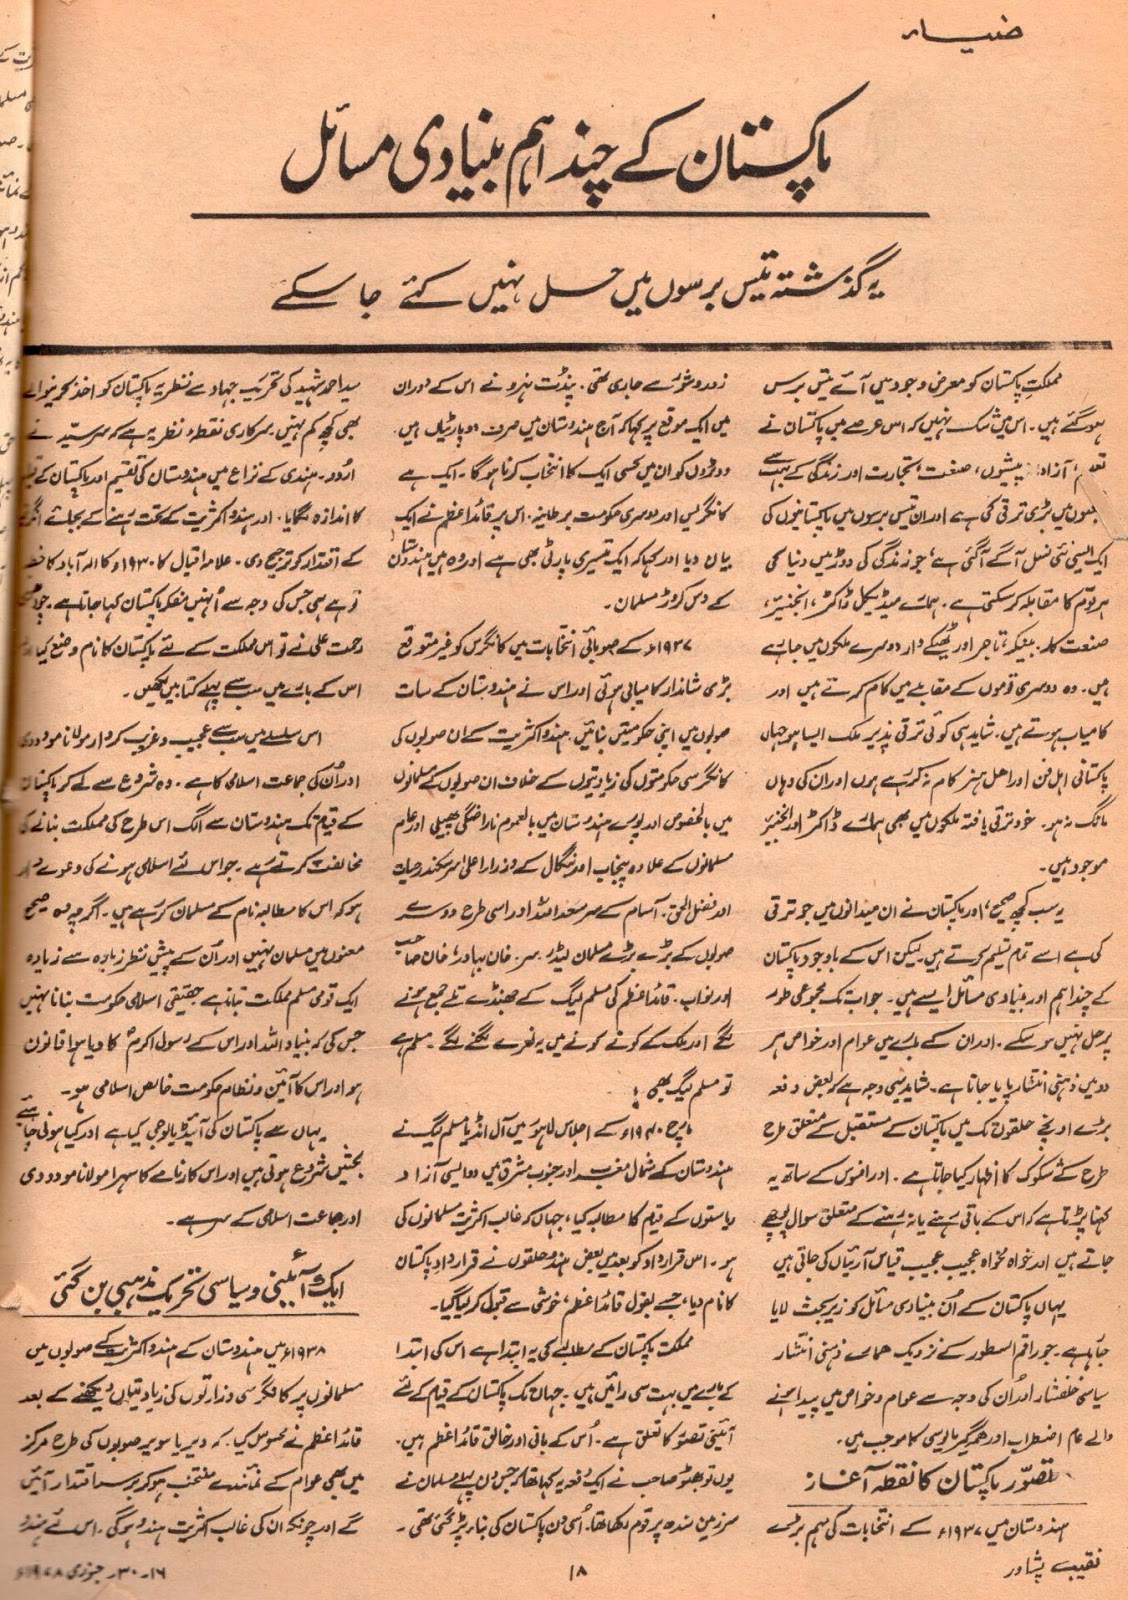 ضیاء
پاکستان کے چند اہم بنیادی مسائل
یہ گذشتہ تیس برسوں میں حل نہیں کئے جا سکے
مملکتِ پاکستان کو معرض وجود میں آئے تیس برس
ہو گئے ہیں۔ اس میں شک نہیں کہ اس عرصے میں پاکستان نے
آزاد پیشوں، صنعت، تجارت اور زندگی کے بہت سے
میں بڑی ترقی کی ہے اور ان تیس برسوں میں پاکستانیوں کی
ایک ایسی نئی نسل آگے آ گئی ہے، جو زندگی کی دوڑ میں دنیا کی
ہر قوم کا مقابلہ کر سکتی ہے۔ ہمارے میڈیکل ڈاکٹر، انجنیئر،
صنعت کار، بینکر، تاجر اور ٹھیکے دار دوسرے ملکوں میں جا رہے
ہیں۔ وہ دوسری قوموں کے مقابلے میں کام کرتے ہیں اور
کامیاب ہوتے ہیں۔ شاید ہی کوئی ترقی پذیر ملک ایسا ہو جہاں
پاکستانی اہل فن اور اہل ہنر کام نہ کر رہے ہوں اور ان کی وہاں
مانگ نہ ہو۔ خود ترقی یافتہ ملکوں میں بھی ہمارے ڈاکٹر اور انجنیئر
موجود ہیں۔
یہ سب کچھ صحیح، اور پاکستان نے ان میدانوں میں جو ترقی
کی ہے اسے تمام تسلیم کرتے ہیں لیکن اس کے باوجود پاکستان
کے چند اہم اور بنیادی مسائل ایسے ہیں۔ جو اب تک مجموعی طور
پر حل نہیں ہو سکے۔ اور ان کے بارے میں عوام اور خواص ہر
دو میں ذہنی انتشار پایا جاتا ہے۔ شاید یہی وجہ ہے کہ بعض دفعہ
بڑے اونچے حلقوں تک میں پاکستان کے مستقبل کے متعلق طرح
طرح کے شکوک کا اظہار کیا جاتا ہے۔ اور افسوس کے ساتھ یہ
کہنا پڑتا ہے کہ اس کے باقی رہنے یا نہ رہنے کے متعلق سوال پوچھے
جاتے ہیں اور خواہ مخواہ عجیب عجیب قیاس آرائیاں کی جاتی ہیں
یہاں پاکستان کے اُن بنیادی مسائل کو زیر بحث لایا
جا رہا ہے۔ جو راقم السطور کے نزدیک ہمارے ذہنی انتشار
سیاسی خلفشار اور اُن کی وجہ سے عوام و خواص میں پیدا ہونے
والے عام اضطراب اور ہمہ گیر مایوسی کا موجب ہیں۔
تصوّر پاکستان کا نقطہ آغاز
ہندوستان میں ۱۹۳۷ء کے انتخابات کی مہم بڑے
زور و شور سے جاری تھی۔ پنڈت نہرو نے اس کے دوران
میں ایک موقع پر کہا کہ آج ہندوستان میں صرف دو پارٹیاں ہیں۔
ووٹروں کو ان میں کسی ایک کا انتخاب کرنا ہوگا۔ ایک ہے
کانگریس اور دوسری حکومت برطانیہ۔ اس پر قائد اعظم نے ایک
بیان دیا اور کہا کہ ایک تیسری پارٹی بھی ہے اور وہ ہیں ہندوستان
کے دس کروڑ مسلمان۔
۱۹۳۷ء کے صوبائی انتخابات میں کانگرس کو غیر متوقع
بڑی شاندار کامیابی ہوئی اور اس نے ہندوستان کے سات
صوبوں میں اپنی حکومتیں بنائیں۔ ہندو اکثریت کے ان صوبوں کی
کانگرسی حکومتوں کی زیادتیوں کے خلاف ان صوبوں کے مسلمانوں
میں بالخصوص اور پورے ہندوستان میں بالعموم ناراضگی پھیلی اور عام
مسلمانوں کے علاوہ پنجاب اور بنگال کے وزراء اعلیٰ سر سکندر حیات
اور فضل الحق۔ آسام کے سر سعد اللہ اور اسی طرح دوسرے
صوبوں کے بڑے بڑے مسلمان لیڈر، سر، خان بہادر، خان صاحب
اور نواب۔ قائد اعظم کی مسلم لیگ کے جھنڈے تلے جمع ہونے
لگے اور ملک کے کونے کونے میں یہ نعرے لگنے لگے۔ مسلم ہے
تو مسلم لیگ بھی!
مارچ ۱۹۴۰ء کے اجلاس لاہور میں آل انڈیا مسلم لیگ نے
ہندوستان کے شمال مغرب اور جنوب مشرق میں دو ایسی آزاد
ریاستوں کے قیام کا مطالبہ کیا، جہاں کہ غالب اکثریت مسلمانوں کی
ہو۔ اس قرارداد کو بعد میں بعض ہندو حلقوں نے قرارداد پاکستان
کا نام دیا، جسے بقول قائد اعظم، خوشی سے قبول کر لیا گیا۔
مملکت پاکستان کے مطالبے کی یہ ابتدا ہے اس کی ابتدا
کے بارے میں بہت سی رائیں ہیں۔ جہاں تک پاکستان کے قیام کے لئے
آئینی تصوّر کا تعلق ہے۔ اُس کے بانی اور خالق قائد اعظم ہیں۔
یوں تو بھٹو صاحب نے ایک دفعہ یہ کہا تھا کہ جس دن پہلے مسلمان نے
سرزمین سندھ پر قدم رکھا تھا۔ اُسی دن پاکستان کی بنا پڑ گئی تھی۔
سید احمد شہید کی تحریک جہاد سے نظریہ پاکستان کو اخذ کرنیوالے
بھی کچھ کم نہیں۔ سرکاری نقطۂ نظر یہ ہے کہ سر سیّد نے
اُردو۔ ہندی کے نزاع میں ہندوستان کی تقسیم اور پاکستان کے
کا اندازہ لگایا۔ اور ہندو اکثریت کے تحت رہنے کے بجائے
کے اقتدار کو ترجیح دی۔ علامہ اقبال کا ۱۹۳۰ء کا الہ آباد کا
تو ہے ہی جس کی وجہ سے اُنہیں مفکر پاکستان کہا جاتا ہے۔
رحمت علی نے تو اس مملکت کے لئے پاکستان کا نام وضع کیا
اس کے بارے میں سب سے پہلے کتابیں لکھیں۔
اس سلسلے میں سب سے عجیب و غریب کردار مولانا مودودی
اور اُن کی جماعت اسلامی کا ہے۔ وہ شروع سے لے کر پاکستان
کے قیام تک ہندوستان سے الگ اس طرح کی مملکت بنانے کی
مخالفت کرتے رہے۔ جو اس لئے اسلامی ہونے کی دعوے دار
ہو کہ اس کا مطالبہ نام کے مسلمان کر رہے ہیں۔ اگرچہ وہ صحیح
معنوں میں مسلمان نہیں اور اُن کے پیش نظر زیادہ سے زیادہ
ایک قومی مسلم مملکت بنانا ہے۔ حقیقی اسلامی حکومت بنانا نہیں
جس کی کہ بنیاد اللہ اور اس کے رسول اکرمؐ کا دیا ہوا قانون
ہو اور اس کا آئین و نظام حکومت خالص اسلامی ہو۔
یہاں سے پاکستان کی آئیڈیالوجی کیا ہے اور کیا ہونی چاہیے
بحثیں شروع ہوتی ہیں اور اس کارنامے کا سہرا مولانا مودودی
اور جماعت اسلامی کے سر ہے۔
ایک آئینی و سیاسی تحریک مذہبی بن گئی
۱۹۳۸ء میں ہندوستان کے ہندو اکثریت کے صوبوں میں
مسلمانوں پر کانگرسی وزارتوں کی زیادتیاں دیکھنے کے بعد
قائد اعظم نے محسوس کیا۔ کہ دیر یا سویر صوبوں کی طرح مرکز
میں بھی عوام کے نمائندے منتخب ہو کر برسر اقتدار آئیں
گے اور چونکہ ان کی غالب اکثریت ہندو ہوگی۔ اس لئے ہندو
نقیب پشاور
۱۸
۱۶۔۳۰۔ جنوری ۱۹۷۸ء